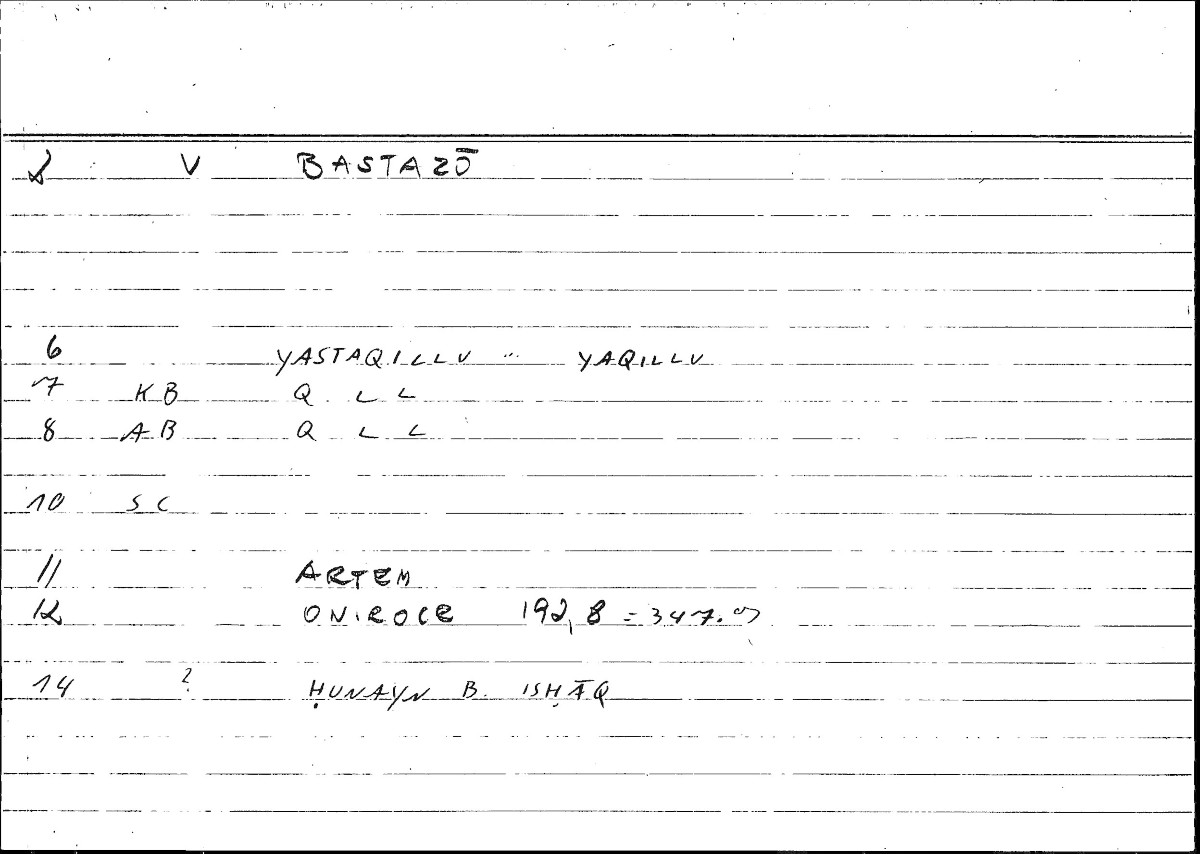 2 V BASTAZŌ
6 YASTAQILLU .. YAQILLU
7 KB Q L L
8 AB Q L L
10 SC
11 ARTEM
12 ONIROCR 192,8 = 347.
14 ? ḤUNAYN B. ISḤĀQ